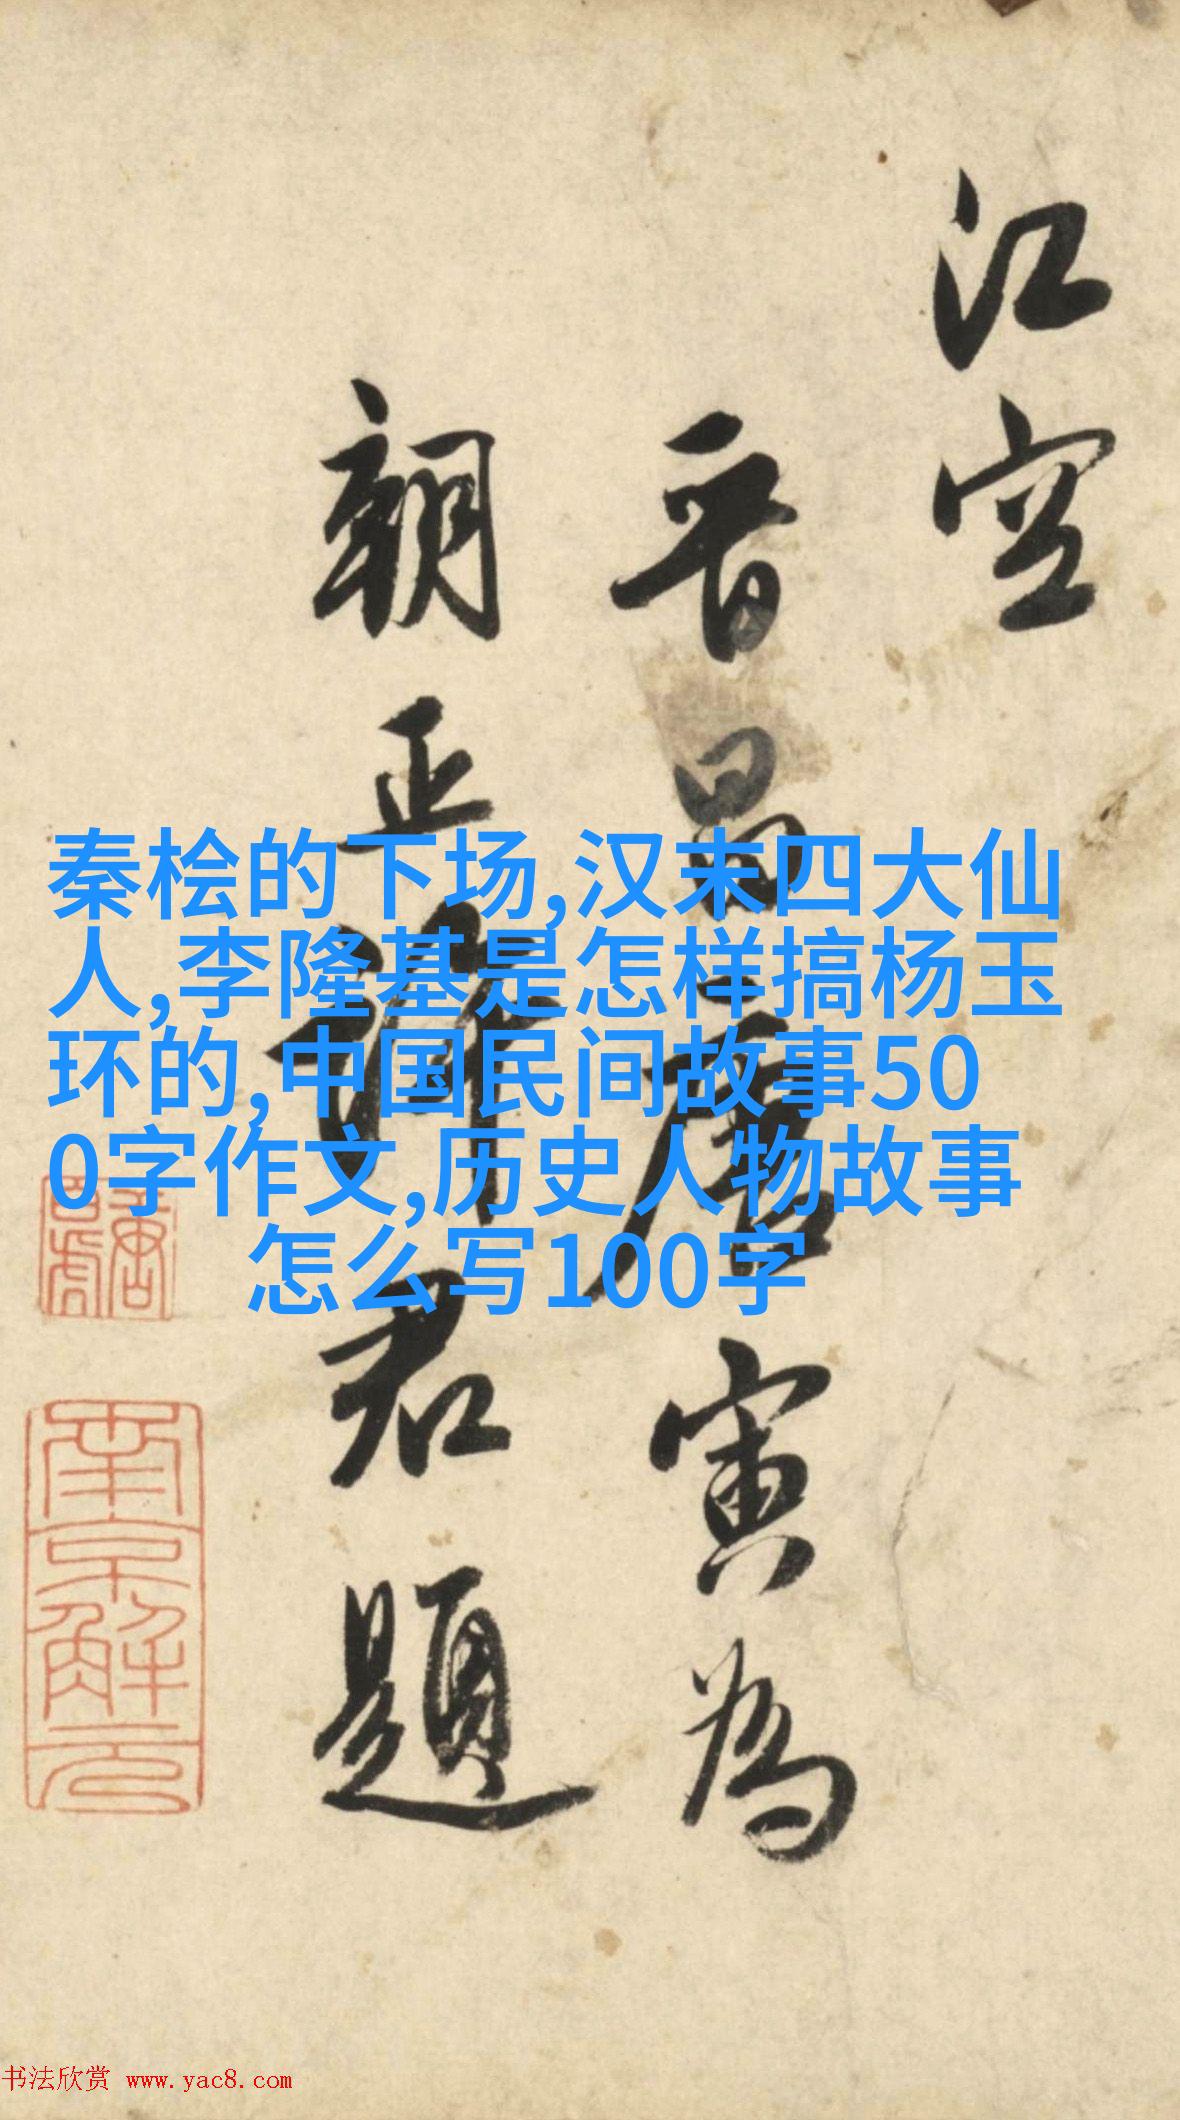 江空
晋昌唐寅為
朝正君題
南京解元
秦桧的下场,汉末四大仙
人,李隆基是怎样搞杨玉
环的,中国民间故事50
0字作文,历史人物故事
怎么写100字
书法欣赏 www.yac8.com